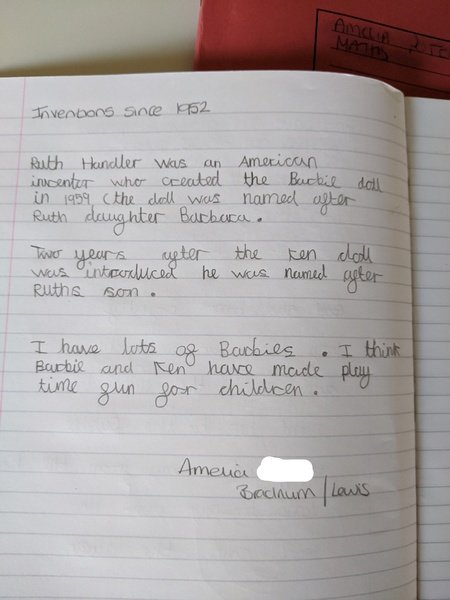 AMELIA
MATHS
Inventions since 1952
Ruth Handler was an American
inventor who created the Barbie doll
in 1959 (the doll was named after
Ruth daughter Barbara.
Two years after the Ken doll
was introduced he was named after
Ruths son.
I have lots of Barbies. I think
Barbie and Ken have made play
time fun for children.
Amelia
Bradnum / Lewis